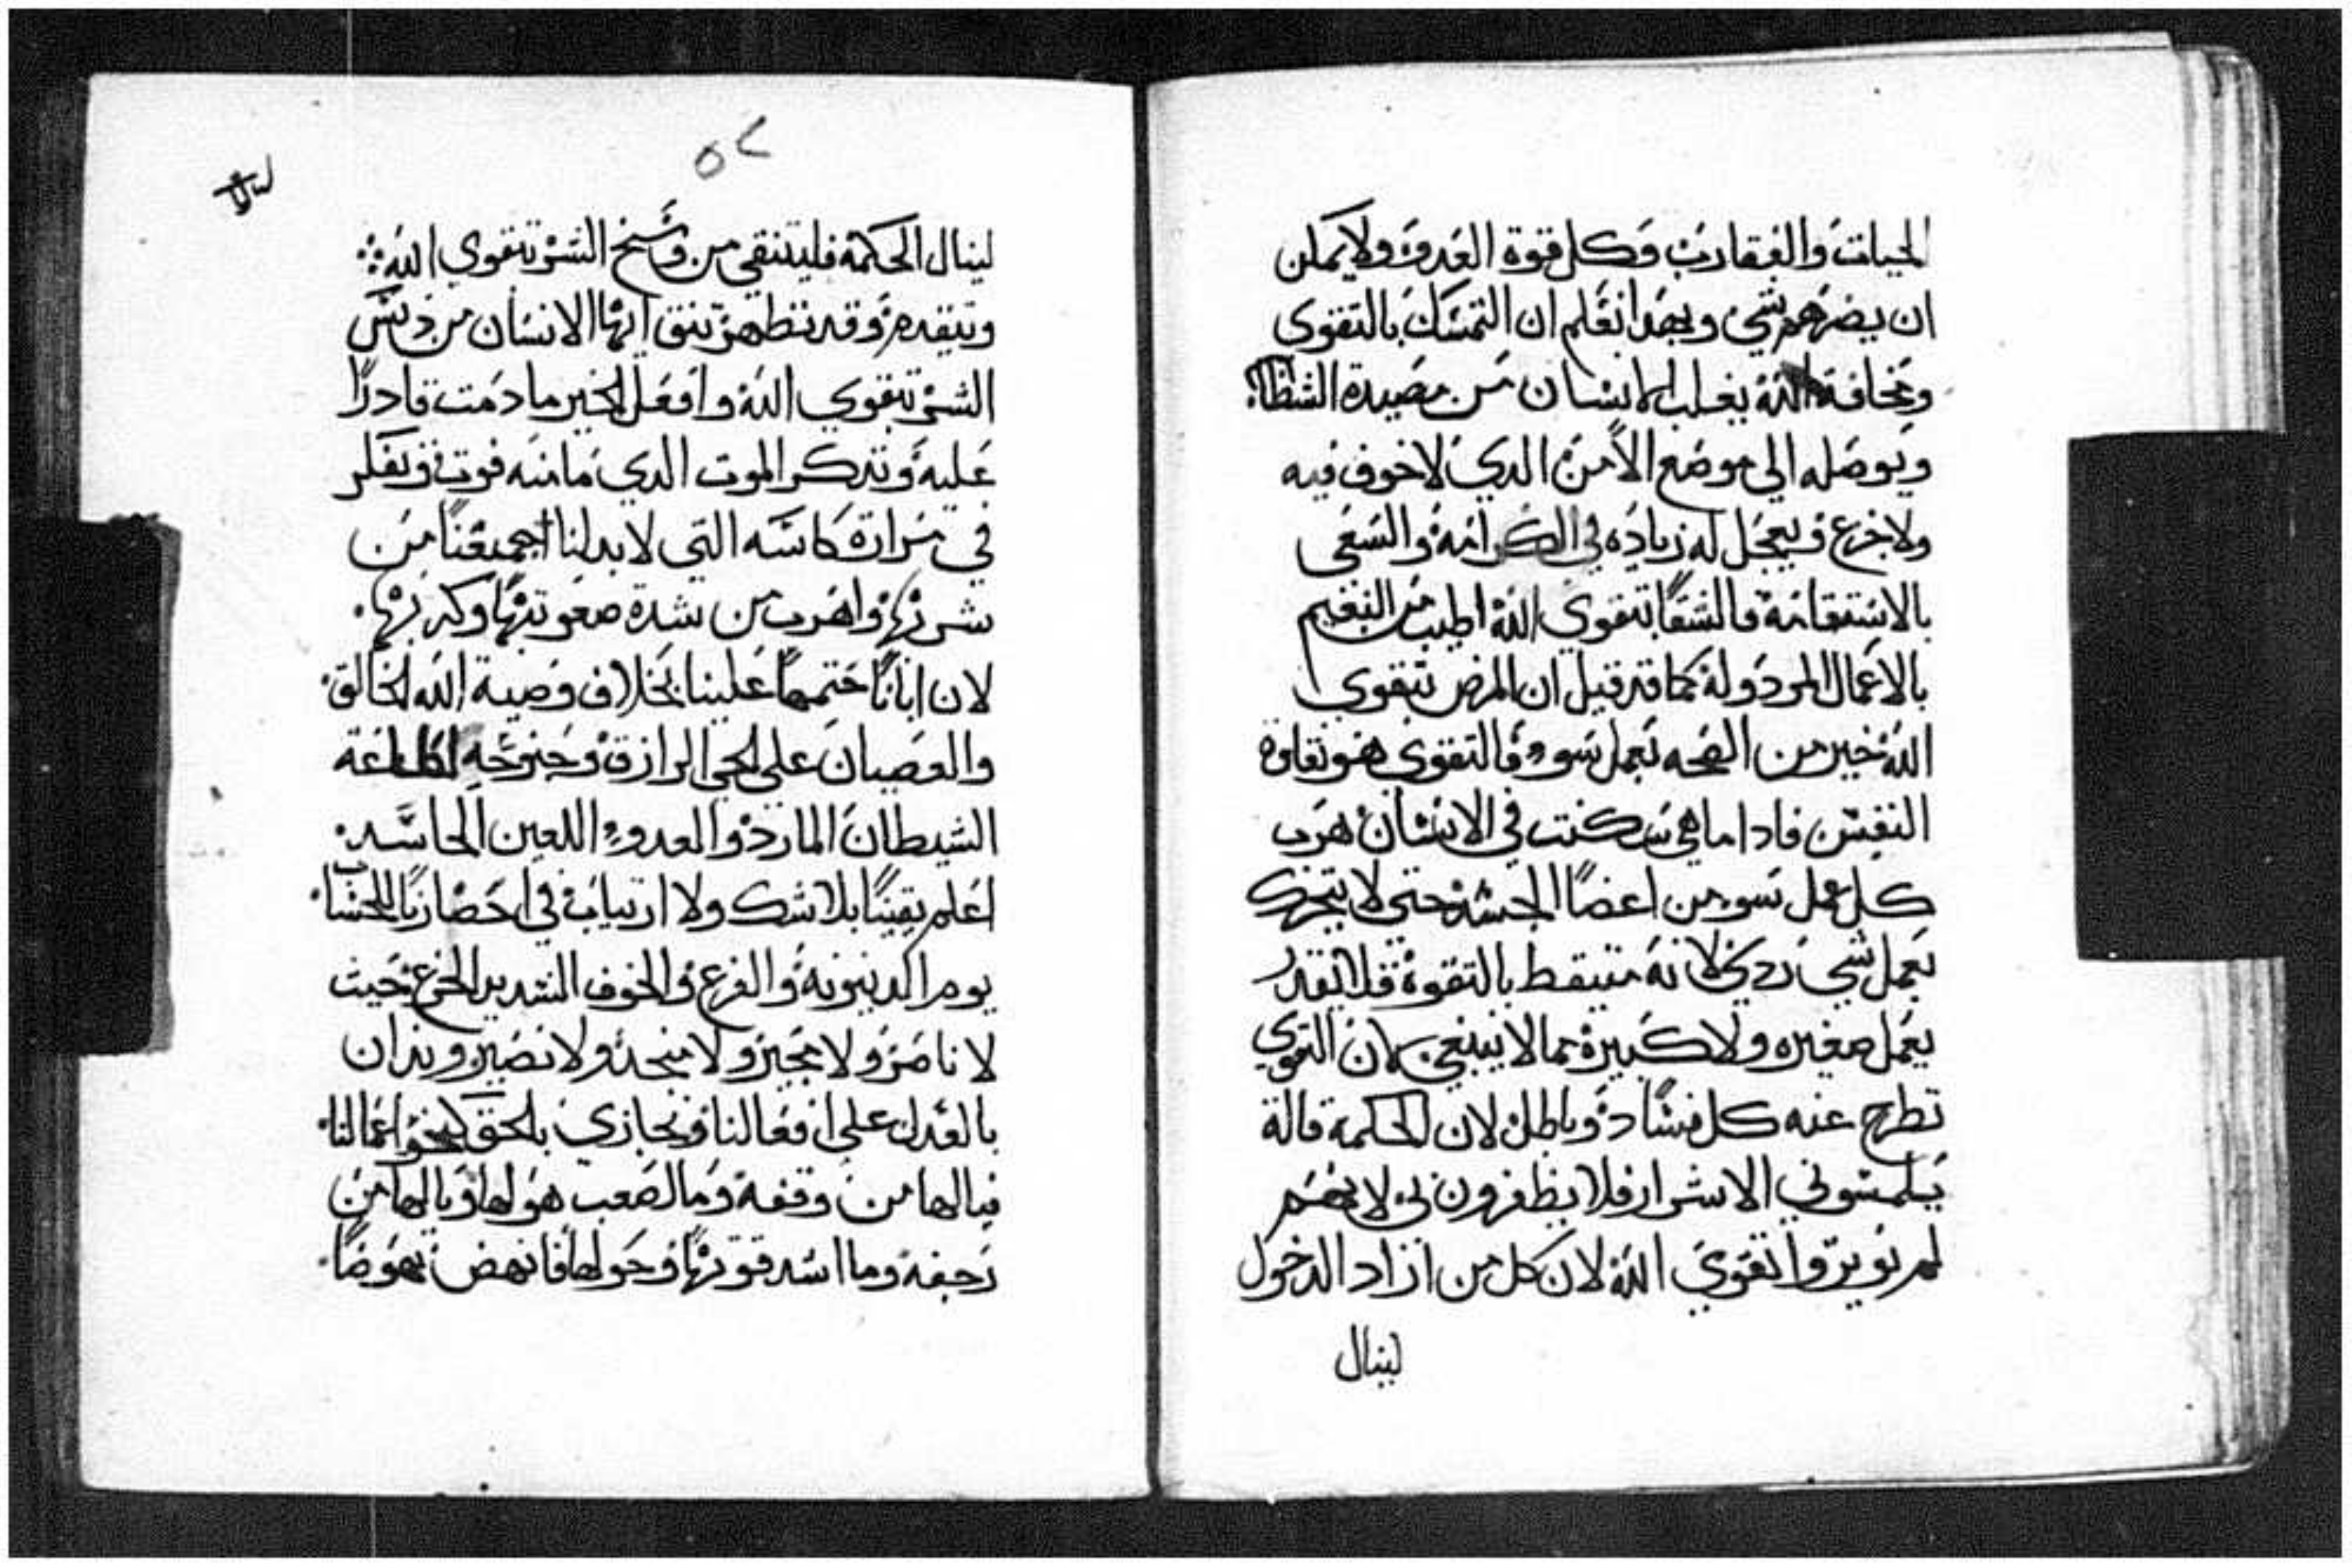 الحيات والعقارب وكل قوة العدوء ولا يمكن
ان يضرهم شي وبهدا نعلم ان التمسك بالتقوي
ومخافة الله الانسان من مصيدة
ويوصله الي موضع الأمن الدي لا خوف فيه
ولا جزع ويجعل له زياده في الكرامة والسعي
بالاستقامة فالشقا بتقوي الله اطيب من النعيم
بالاعمال المردولة كما قد قيل ان المرض بتقوي
الله خير من الصحه بعمل سوء فالتقوي هو نقاوة
النفس فادا ما هي سكنت في الانسان هرب
كل عمل سو من اعضا الجسد حتي لا يتحرك
بعمل شي ردي لانه متيقط بالتقوة فلا يقدر
يعمل صغيره ولا كبيرة مما لا ينبغي لان التقوي
تطرح عنه كل فساد وباطل لان الحكمة قالة
يلمسوني الاشرار فلا يظفرون بي لانهم
لم يويروا تقوي الله لان كل من اراد الدخول
لينال
٥٢
لينال الحكمة فليتنقي من وسخ الشر بتقوي الله
ويتقدم وقد تطهر تنق ايها الانسان من دنس
الشر بتقوي الله وافعل الخير ما دمت قادرًا
عليه وتدكر الموت الدي ما منه فوت وتفكر
في مرارة كاسه التي لا بد لنا اجمعنا من
شربها واهرب من شدة صعوبتها وكربها
لان ابانا ختمها علينا بخلاف وصية الله الخالق
والعصيان على الحي الرازق وجنوحه
الشيطان المارد والعدوء اللعين الحاسد
اعلم يقينًا بلا شك ولا ارتياب في احضارنا للحساب
يوم الدينونة والفزع والخوف الشديد الجزع حيث
لا ناصر ولا مجير ولا منجد ولا نصير وندان
بالعدل على افعالنا ونجازي بالحق كنحو اعمالنا
فيالها من وقفة وما اصعب هولها ويالها من
رجفة وما اشد قوتها وحولها فانهض نهوضًا